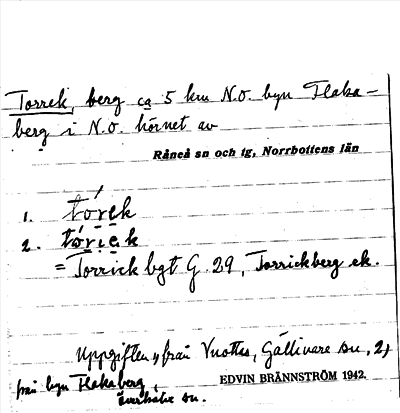 Torrek, berg ca 5 km N.O. byn Flaka-
berg i N.O. hörnet av
Råneå sn och tg, Norrbottens län
1. tórek
2. tórick
= Torrick bgt G. 29, Torrickberg ek.
Uppgiften 1) från Vuottas, Gällivare sn, 2)
från byn Flakaberg,
EDVIN BRÄNNSTRÖM 1942.
överluleå sn.